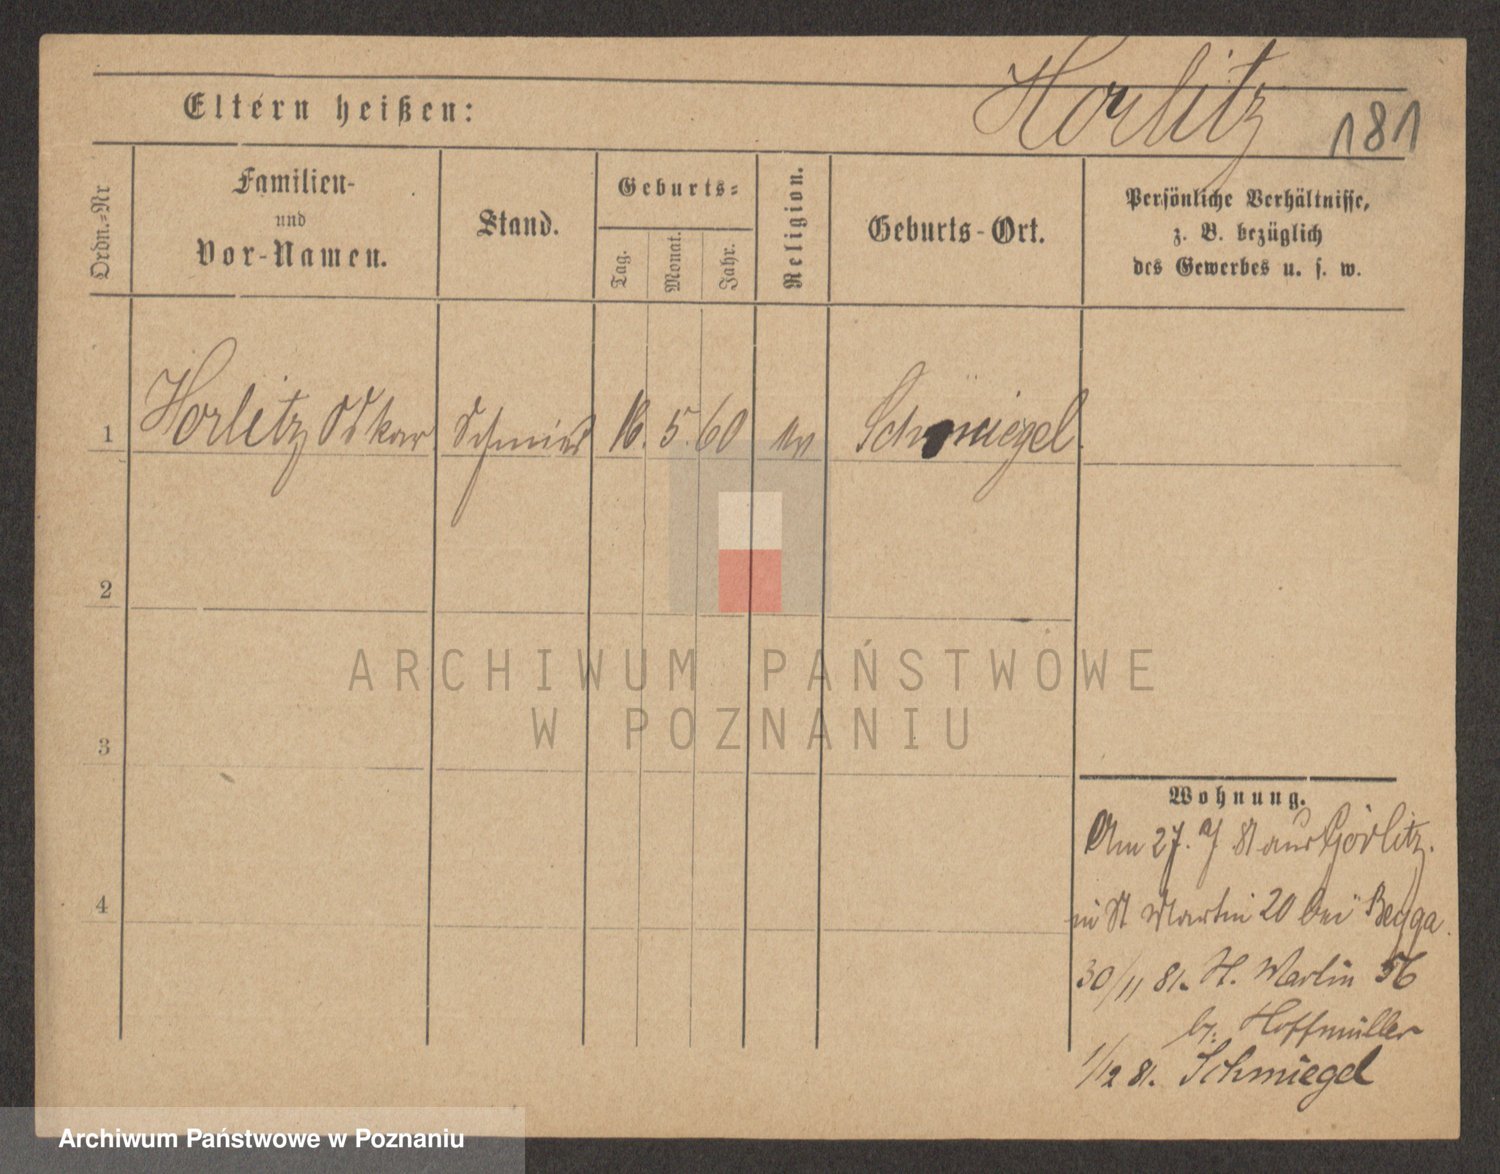 Horlitz
181
Eltern heißen:
Ordn.=Nr
Familien-
und
Vor-Namen.
Stand.
Geburts=
Tag.
Monat.
Jahr.
Religion.
Geburts-Ort.
Persönliche Verhältnisse,
z. B. bezüglich
des Gewerbes u. s. w.
1 Horlitz Oskar Schmied 16. 5. 60 ev Schmiegel.
2
3
4
ARCHIWUM PAŃSTWOWE
W POZNANIU
Wohnung.
Am 27. 81 aus Görlitz.
in St Martin 20 bei Beyga.
30/11 81. St. Martin 56
b. Hoffmüller
1/12 81. Schmiegel
Archiwum Państwowe w Poznaniu